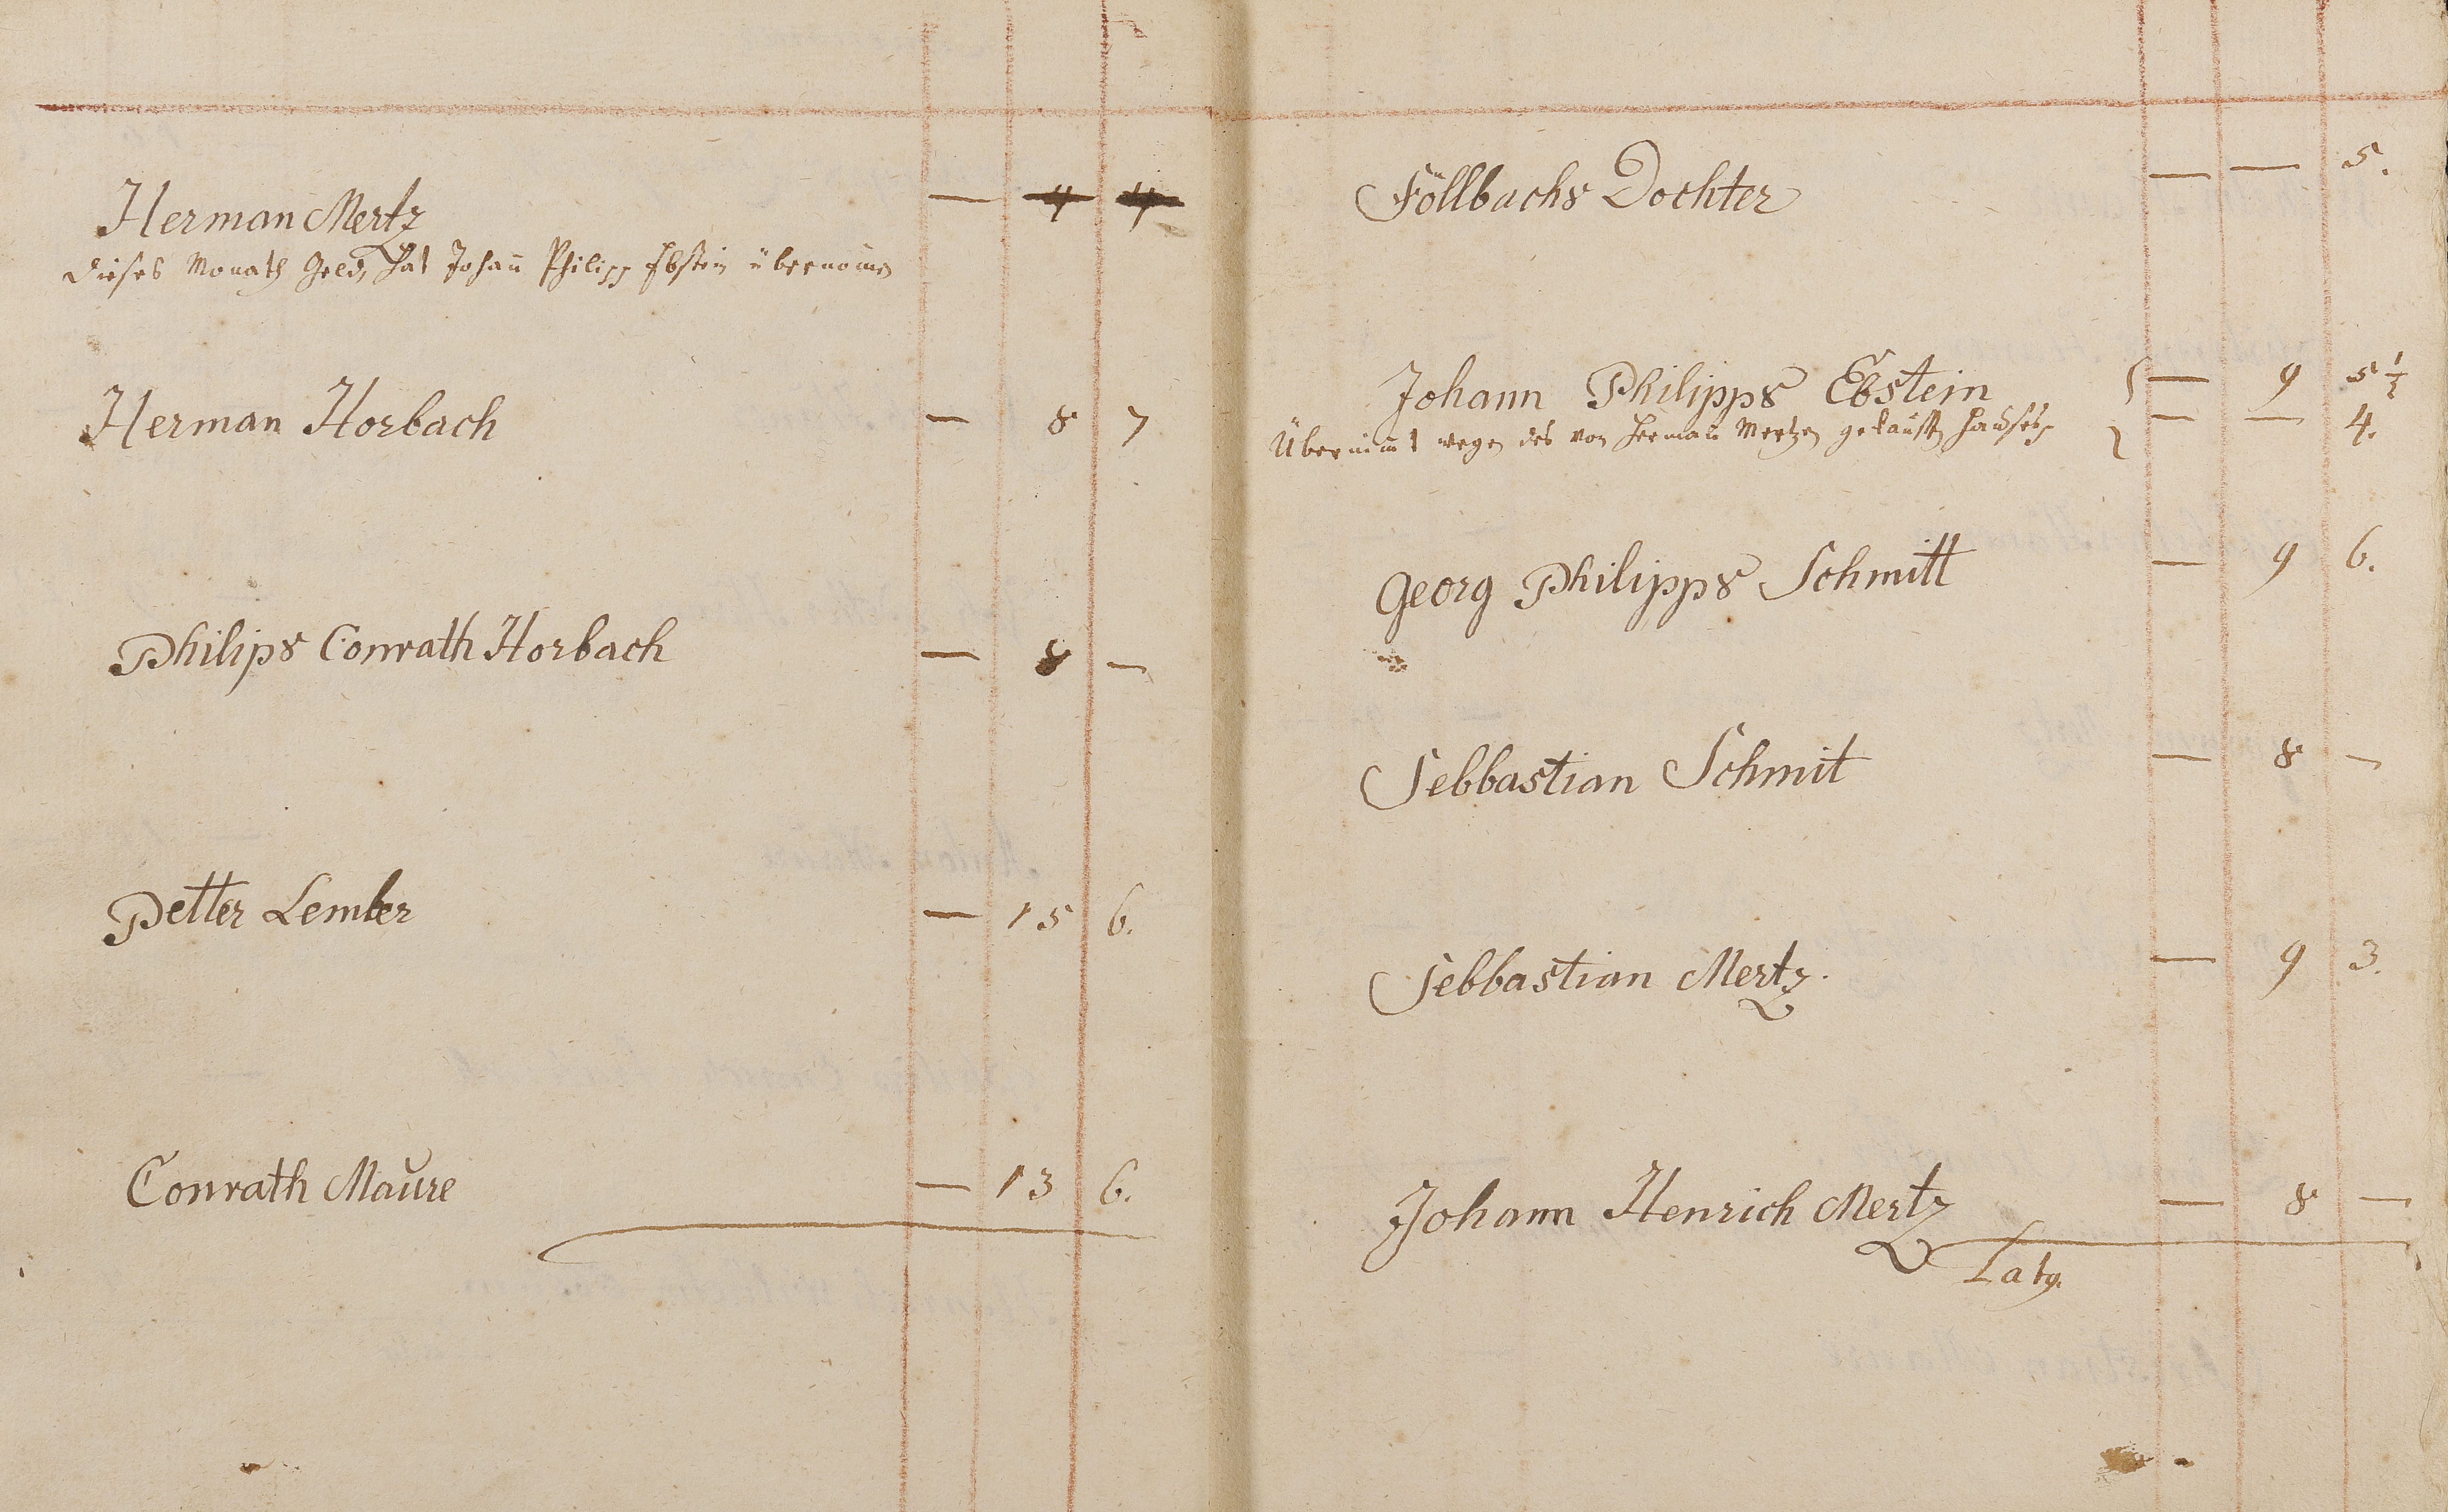 Herman Mertz — 4 4
Dieses Monath Geld, hat Johañ Philipp Ebstein übernom̄en
Herman Horbach — 8 7
Philips Conrath Horbach — 8 —
Petter Lember — 15 6.
Conrath Maure — 13 6.
Föllbachs Dochter — — 5.
Johann Philipps Ebstein — 9 5 1/2
Übernim̄t wegen des von Hermañ Mertzen gekauften Haußes — — 4.
Georg Philipps Schmitt — 9 6.
Sebbastian Schmit — 8 —
Sebbastian Mertz. — 9 3.
Johann Henrich Mertz — 8 —
Latg.